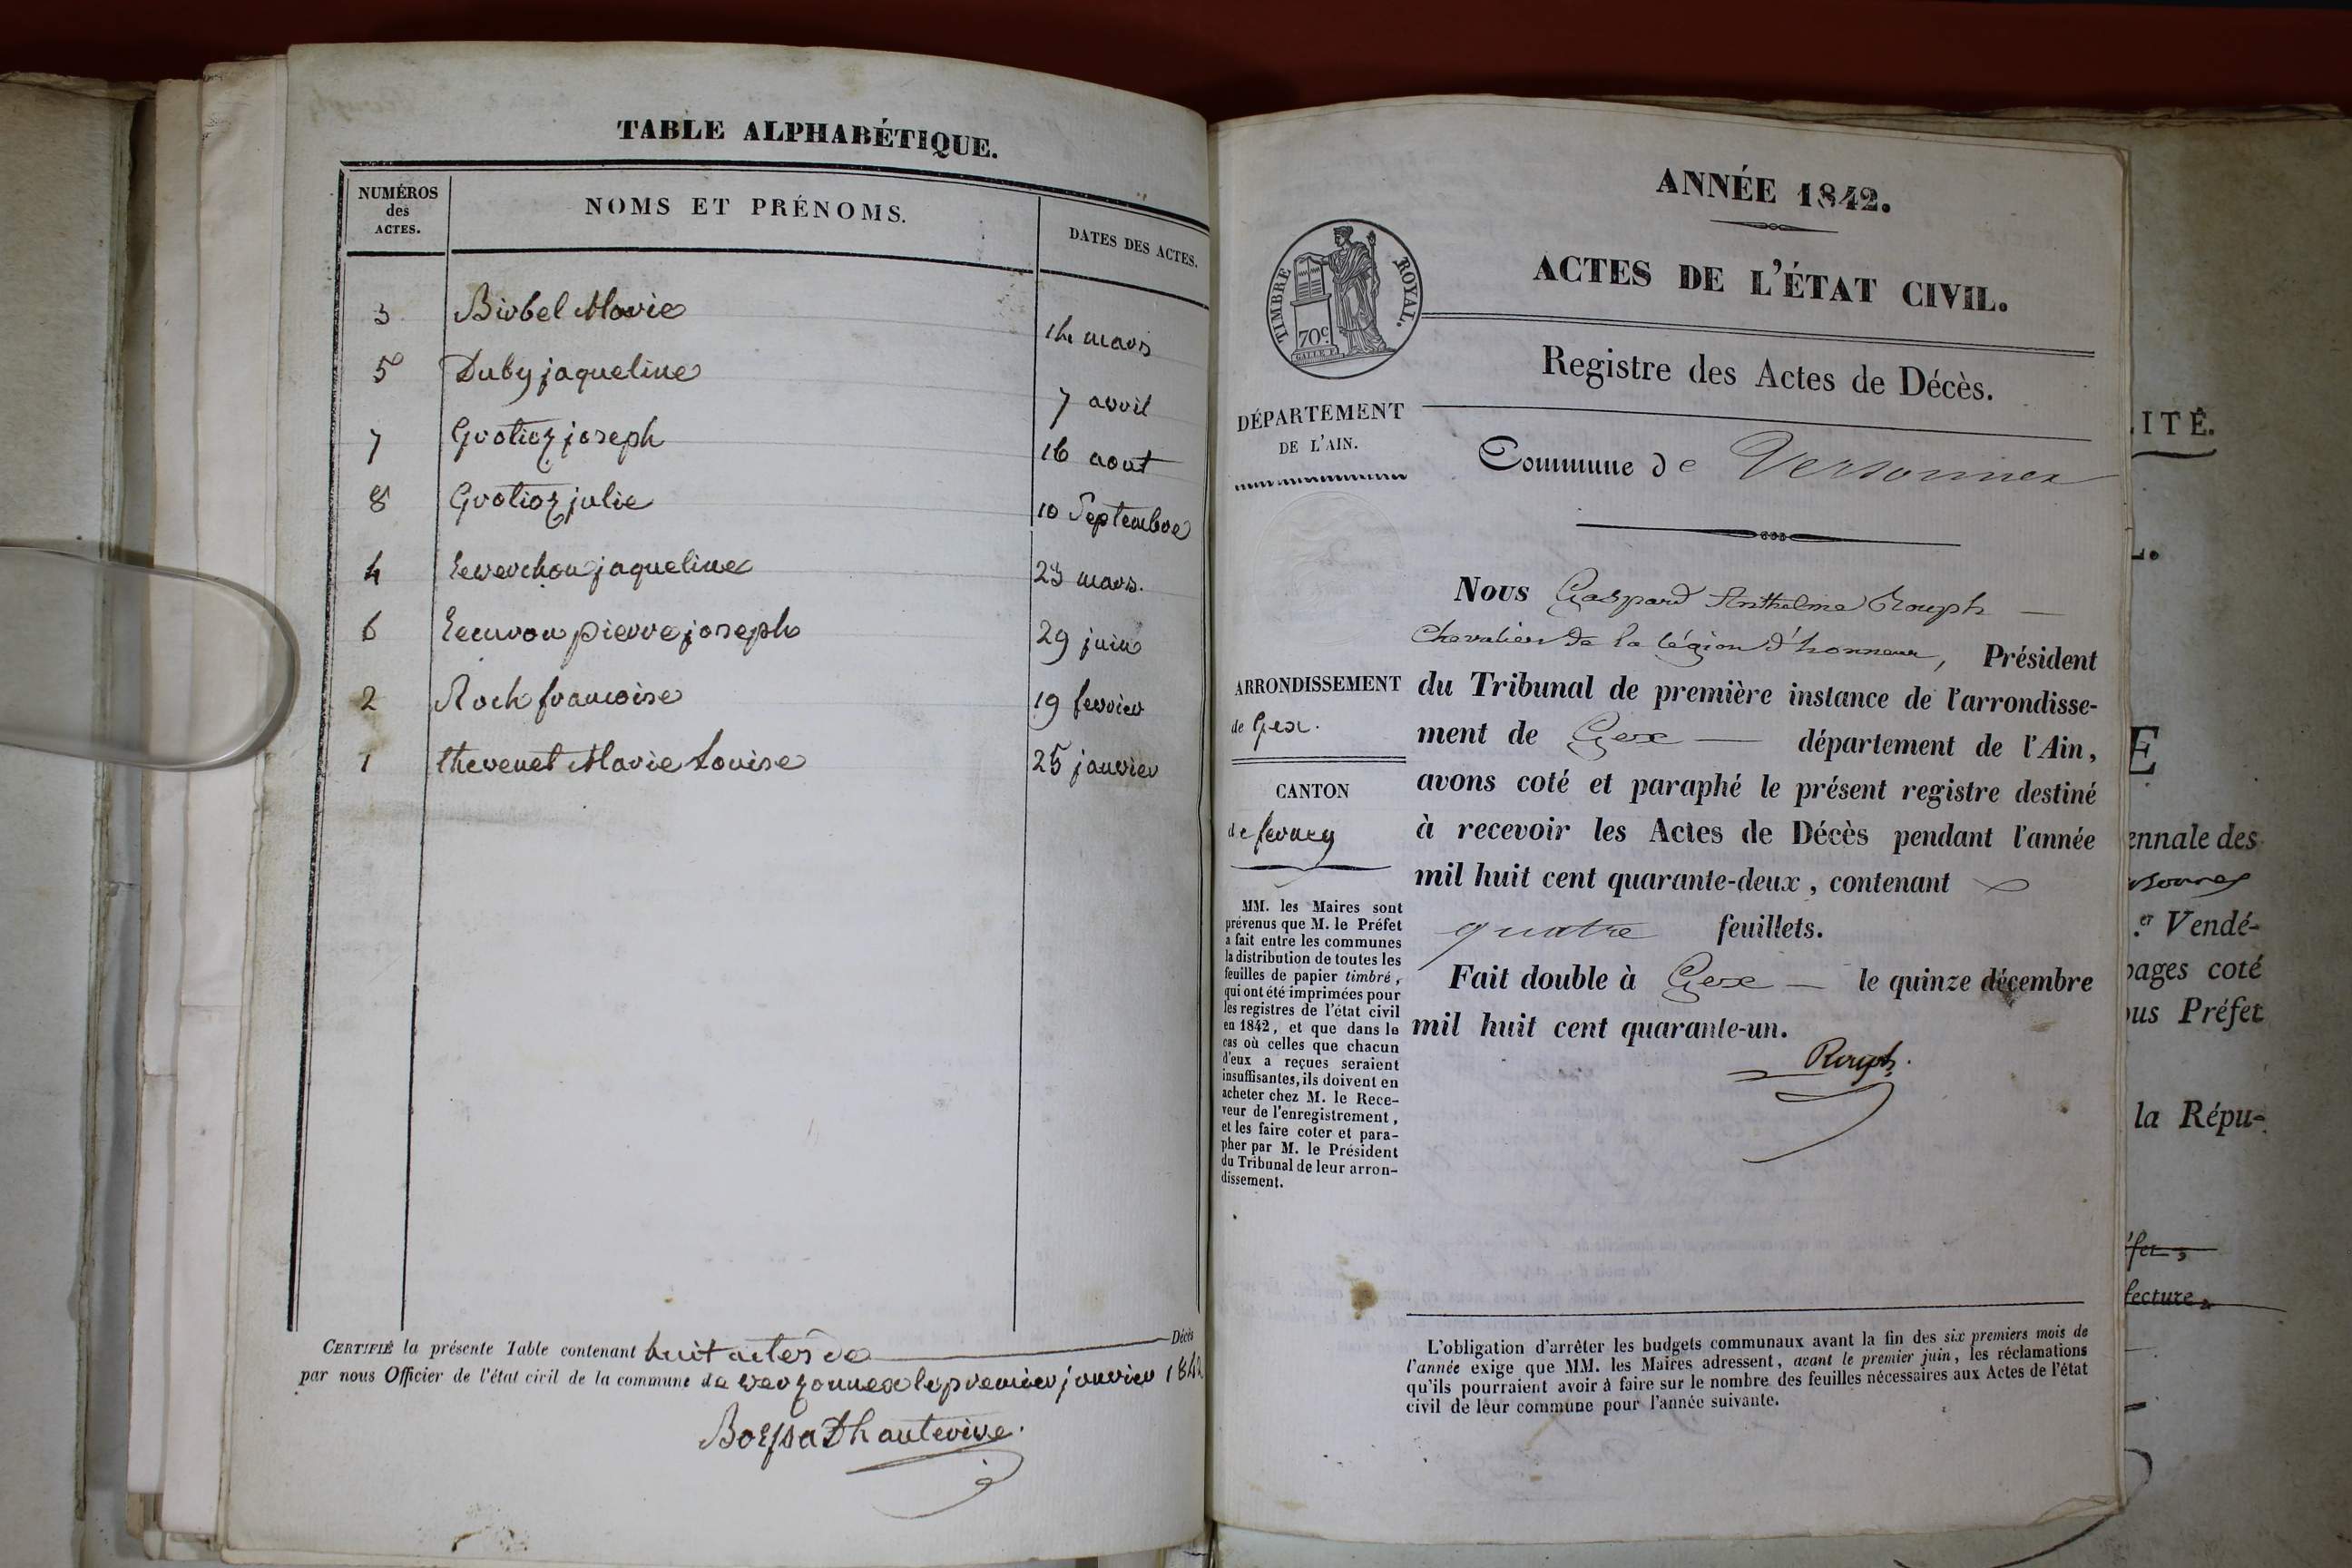 TABLE ALPHABÉTIQUE.
NUMÉROS
des
ACTES.
NOMS ET PRÉNOMS.
DATES DES ACTES.
3 Birbel Marie 14 mars
5 Duby jaqueline 7 avril
7 Grotioz joseph 16 aout
8 Grotioz julie 10 Septembre
4 jaqueline 23 mars.
6 pierre joseph 29 juin
2 Roch francoise 19 fevrier
1 thevenet Marie Louise 25 janvier
CERTIFIÉ la présente Table contenant huit actes de Décès
par nous Officier de l'état civil de la commune de verzonnex le premier janvier 184
Dhauterive.
ANNÉE 1842.
ACTES DE L'ÉTAT CIVIL.
TIMBRE ROYAL.
70c
Registre des Actes de Décès.
DÉPARTEMENT
DE L'AIN.
Commune de Versonnex
Nous Gaspard Anthelme Rouph
Chevalier de la légion d'honneur, Président
du Tribunal de première instance de l'arrondisse-
ment de Gex département de l'Ain,
avons coté et paraphé le présent registre destiné
à recevoir les Actes de Décès pendant l'année
mil huit cent quarante-deux, contenant
quatre feuillets.
Fait double à Gex le quinze décembre
mil huit cent quarante-un.
Rouph.
ARRONDISSEMENT
de Gex.
CANTON
de ferney
MM. les Maires sont
prévenus que M. le Préfet
a fait entre les communes
la distribution de toutes les
feuilles de papier timbré,
qui ont été imprimées pour
les registres de l'état civil
en 1842, et que dans le
cas où celles que chacun
d'eux a reçues seraient
insuffisantes, ils doivent en
acheter chez M. le Rece-
veur de l'enregistrement,
et les faire coter et para-
pher par M. le Président
du Tribunal de leur arron-
dissement.
L'obligation d'arrêter les budgets communaux avant la fin des six premiers mois de
l'année exige que MM. les Maires adressent, avant le premier juin, les réclamations
qu'ils pourraient avoir à faire sur le nombre des feuilles nécessaires aux Actes de l'état
civil de leur commune pour l'année suivante.
ITÉ.
E
ennale des
er Vendé-
pages coté
ous Préfet
la Répu-
fecture